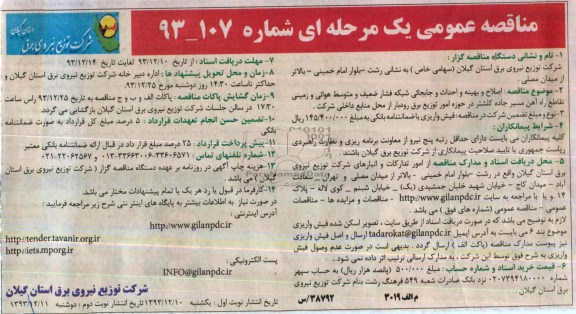 مناقصه عمومی یک مرحله ای شماره ۱۰۷_۹۳
شرکت توزیع نیروی برق
استان گیلان
۱- نام و نشانی دستگاه مناقصه گزار:
شرکت توزیع نیروی برق استان گیلان (سهامی خاص) به نشانی رشت -بلوار امام خمینی – بالاتر از میدان مصلی
۲- موضوع مناقصه: اصلاح و بهینه و احداث و جابجائی شبکه فشار ضعیف و متوسط هوائی و زمینی
تقاطع راه آهن مسیر جاده کلشتر در حوزه امور توزیع برق رودبار از محل منابع داخلی شرکت.
۳- نوع و مبلغ تضمین شرکت در مناقصه: فیش واریزی یا ضمانتنامه بانکی به مبلغ ۱۴۵/۴۰۰/۰۰۰ ریال
۴- شرایط پیمانکاران:
کلیه پیمانکاران می بایست دارای حداقل رتبه پنج نیرو از معاونت برنامه ریزی و نظارت راهبردی
ریاست جمهوری یا تایید صلاحیت پیمانکاری از شرکت توزیع برق گیلان باشند.
۵- محل دریافت اسناد و مدارک مناقصه: از امور تدارکات و انبارهای شرکت توزیع نیروی
برق استان گیلان واقع در رشت -بلوار امام خمینی - بالاتر از میدان مصلی و تهران سعادت
آباد - میدان کاج - خیابان شهید خلیل جمشیدی (یک) _ خیابان شبنم _ کوی لاله - پلاک
۱۴ و یا با مراجعه به سایت http://www.gilanpdc.ir - مناقصات و مزایده ها - مناقصات
عمومی – مناقصات عمومی (شماره های فوق) می باشد.
لازم به توضیح می باشد که در صورت دریافت اسناد از طریق سایت، تصویر اسکن شده فیش واریزی
موضوع بند ۶ می بایست به آدرس ایمیل tadarokat@gilanpdc.ir ارسال و اصل فیش واریزی
نیز پیوست مدارک مناقصه (پاکت الف) ارسال گردد. بدیهی است در صورت عدم وصول فیش
واریزی به شرح فوق توسط این شرکت، به مدارک ارسالی ترتیب اثر داده نخواهد شد.
۶- قیمت خرید اسناد و شماره حساب: مبلغ ۵۰۰/۰۰۰ (پانصد هزار ریال) به حساب سپهر
شماره ۰۲۰۷۳۹۴۱۸۰۰۰ نزد بانک صادرات شعبه ۵۴۹ فرهنگ رشت بنام شرکت توزیع نیروی
م الف ۳۰۱۹
۷- مهلت دریافت اسناد: از تاریخ ۹۳/۱۲/۱۰ لغایت تاریخ ۹۳/۱۲/۱۴
۸- زمان و محل تحویل پیشنهاد ها: اداره دبیر خانه شرکت توزیع نیروی برق استان گیلان و
حداکثر تاساعت ۱۴:۳۰ روز دوشنبه مورخ ۹۳/۱۲/۲۵
۹- زمان گشایش پاکات مناقصه: پاکات الف و ب و ج مناقصه به تاریخ ۹۳/۱۲/۲۵ راس ساعت
۱۷:۳۰ در سالن جلسات شرکت توزیع نیروی برق استان گیلان بازگشایی می گردد.
۱۰- تضمین حسن انجام تعهدات قرارداد: ۵ درصد مبلغ کل قرارداد به صورت ضمانتنامه
بانکی
۱۱- پیش پرداخت قرارداد: ۲۵ درصد مبلغ قرار داد در قبال ارائه ضمانتنامه بانکی معتبر
۱۲- شماره تلفنهای تماس:
۱۳- هزینه چاپ آگهی در روزنامه بر عهده دستگاه مناقصه گزار (شرکت توزیع نیروی برق استان
گیلان) می باشد
۱۴- کارفرما در قبول یا رد هر یک یا تمام پیشنهادات مختار می باشد.
در صورت نیاز به اطلاعات بیشتر به پایگاه های اینتر نتی شرح زیر مراجعه فرمایید:
آدرس اینترنتی:
http://www.gilanpdc.ir
http://tender.tavanir.org.ir
http://iets.mporg.ir
پست الکترونیکی:
INFO@gilanpdc.ir
شرکت توزیع نیروی برق استان گیلان
۳۸۷۹۲/س
تاریخ انتشار نوبت اول: یکشنبه ۱۳۹۳/۱۲/۱۰ تاریخ انتشار نوبت دوم: دوشنبه ۱۳۹۳/۱۲/۱۱